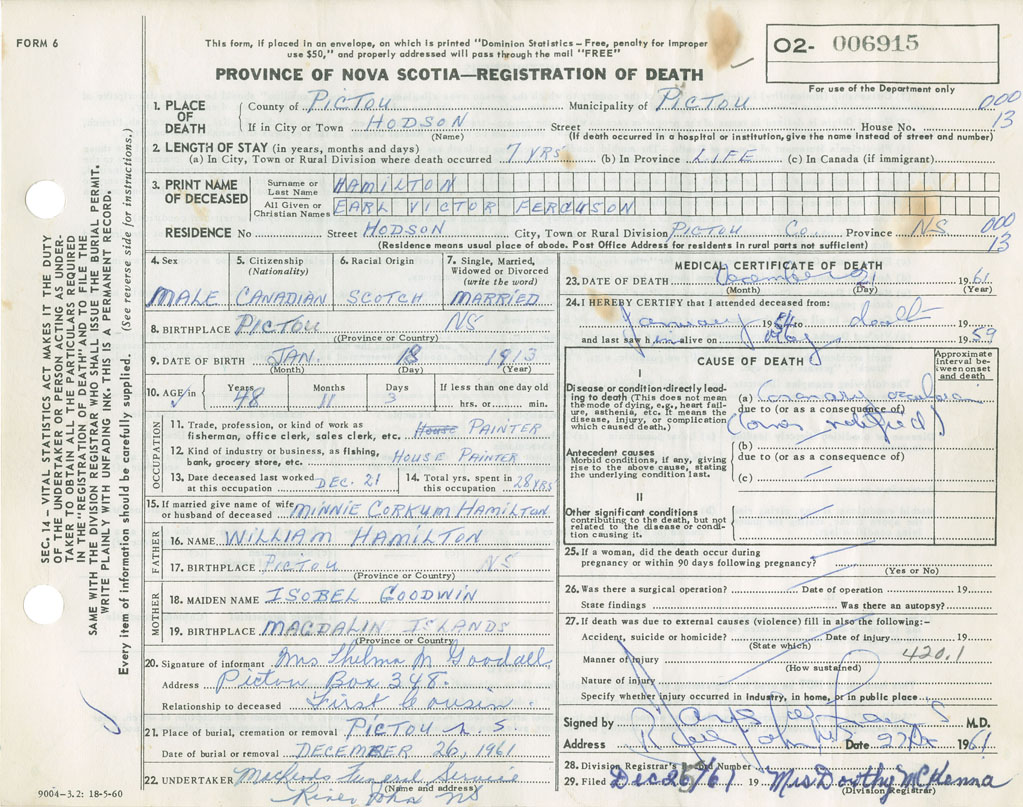 FORM 6
This form, if placed in an envelope, on which is printed "Dominion Statistics – Free, penalty for improper
use $50," and properly addressed will pass through the mail "FREE"
O2- 006915
For use of the Department only
PROVINCE OF NOVA SCOTIA—REGISTRATION OF DEATH
1. PLACE OF DEATH { County of PICTOU Municipality of PICTOU 000
If in City or Town HODSON Street House No. 13
(Name) (If death occurred in a hospital or institution, give the name instead of street and number)
2. LENGTH OF STAY (in years, months and days)
(a) In City, Town or Rural Division where death occurred 7 YRS (b) In Province LIFE (c) In Canada (if immigrant)
3. PRINT NAME OF DECEASED
Surname or Last Name HAMILTON
All Given or Christian Names EARL VICTOR FERGUSON
RESIDENCE No Street HODSON City, Town or Rural Division PICTOU Co. Province NS 000
(Residence means usual place of abode. Post Office Address for residents in rural parts not sufficient) 13
4. Sex
MALE
5. Citizenship (Nationality)
CANADIAN
6. Racial Origin
SCOTCH
7. Single, Married, Widowed or Divorced (write the word)
MARRIED
8. BIRTHPLACE PICTOU NS
(Province or Country)
9. DATE OF BIRTH JAN. 18 1913
(Month) (Day) (Year)
10. AGE/in Years Months Days If less than one day old
48 11 3 hrs. or min.
OCCUPATION
11. Trade, profession, or kind of work as
fisherman, office clerk, sales clerk, etc. House PAINTER
12. Kind of industry or business, as fishing,
bank, grocery store, etc. HOUSE PAINTER
13. Date deceased last worked at this occupation DEC. 21
14. Total yrs. spent in this occupation 28 YRS
15. If married give name of wife
or husband of deceased MINNIE CORKUM HAMILTON
FATHER
16. NAME WILLIAM HAMILTON
17. BIRTHPLACE PICTOU NS
(Province or Country)
MOTHER
18. MAIDEN NAME ISOBEL GOODWIN
19. BIRTHPLACE MAGDALIN ISLANDS
(Province or Country)
20. Signature of informant Mrs Thelma M Goodall
Address Pictou Box 348.
Relationship to deceased First Cousin
21. Place of burial, cremation or removal PICTOU N.S.
Date of burial or removal DECEMBER 26, 1961
22. UNDERTAKER MacLeods Funeral Service
(Name and address)
River John NS
9004-3.2: 18-5-60
MEDICAL CERTIFICATE OF DEATH
23. DATE OF DEATH December 21 1961
(Month) (Day) (Year)
24. I HEREBY CERTIFY that I attended deceased from:
January 19 to death 19
and last saw him alive on 1959
CAUSE OF DEATH
Approximate interval between onset and death
I
Disease or condition directly leading to death (This does not mean the mode of dying, e.g., heart failure, asthenia, etc. It means the disease, injury, or complication which caused death.)
(a) Coronary occlusion
due to (or as a consequence of)
(Coroner notified)
Antecedent causes
Morbid conditions, if any, giving rise to the above cause, stating the underlying condition last.
(b)
due to (or as a consequence of)
(c)
II
Other significant conditions
contributing to the death, but not related to the disease or condition causing it.
25. If a woman, did the death occur during
pregnancy or within 90 days following pregnancy?
(Yes or No)
26. Was there a surgical operation? Date of operation 19
State findings Was there an autopsy?
27. If death was due to external causes (violence) fill in also the following:–
Accident, suicide or homicide? Date of injury 19
(State which)
Manner of injury 420.1
(How sustained)
Nature of injury
Specify whether injury occurred in Industry, in home, or in public place
Signed by M.D.
Address River John NS Date 27 1961
28. Division Registrar's Record Number
29. Filed Dec 26/61 19 Mrs Dorothy McKenna
(Division Registrar)
SEC. 14 – VITAL STATISTICS ACT MAKES IT THE DUTY
OF THE UNDERTAKER OR PERSON ACTING AS UNDER-
TAKER TO OBTAIN ALL THE PARTICULARS REQUIRED
IN THE "REGISTRATION OF DEATH" AND TO FILE THE
SAME WITH THE DIVISION REGISTRAR WHO SHALL ISSUE THE BURIAL PERMIT.
WRITE PLAINLY WITH UNFADING INK. THIS IS A PERMANENT RECORD.
Every item of information should be carefully supplied. (See reverse side for instructions.)